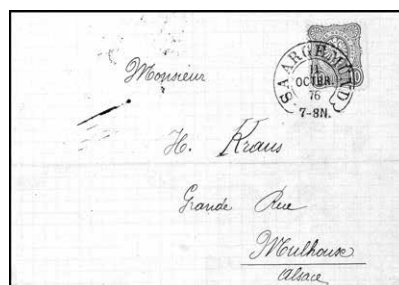 SAARGEMÜND
11
OCTBR.
76
7-8N.
Monsieur
H. Kraus
Grande Rue
Mulhouse
Alsace